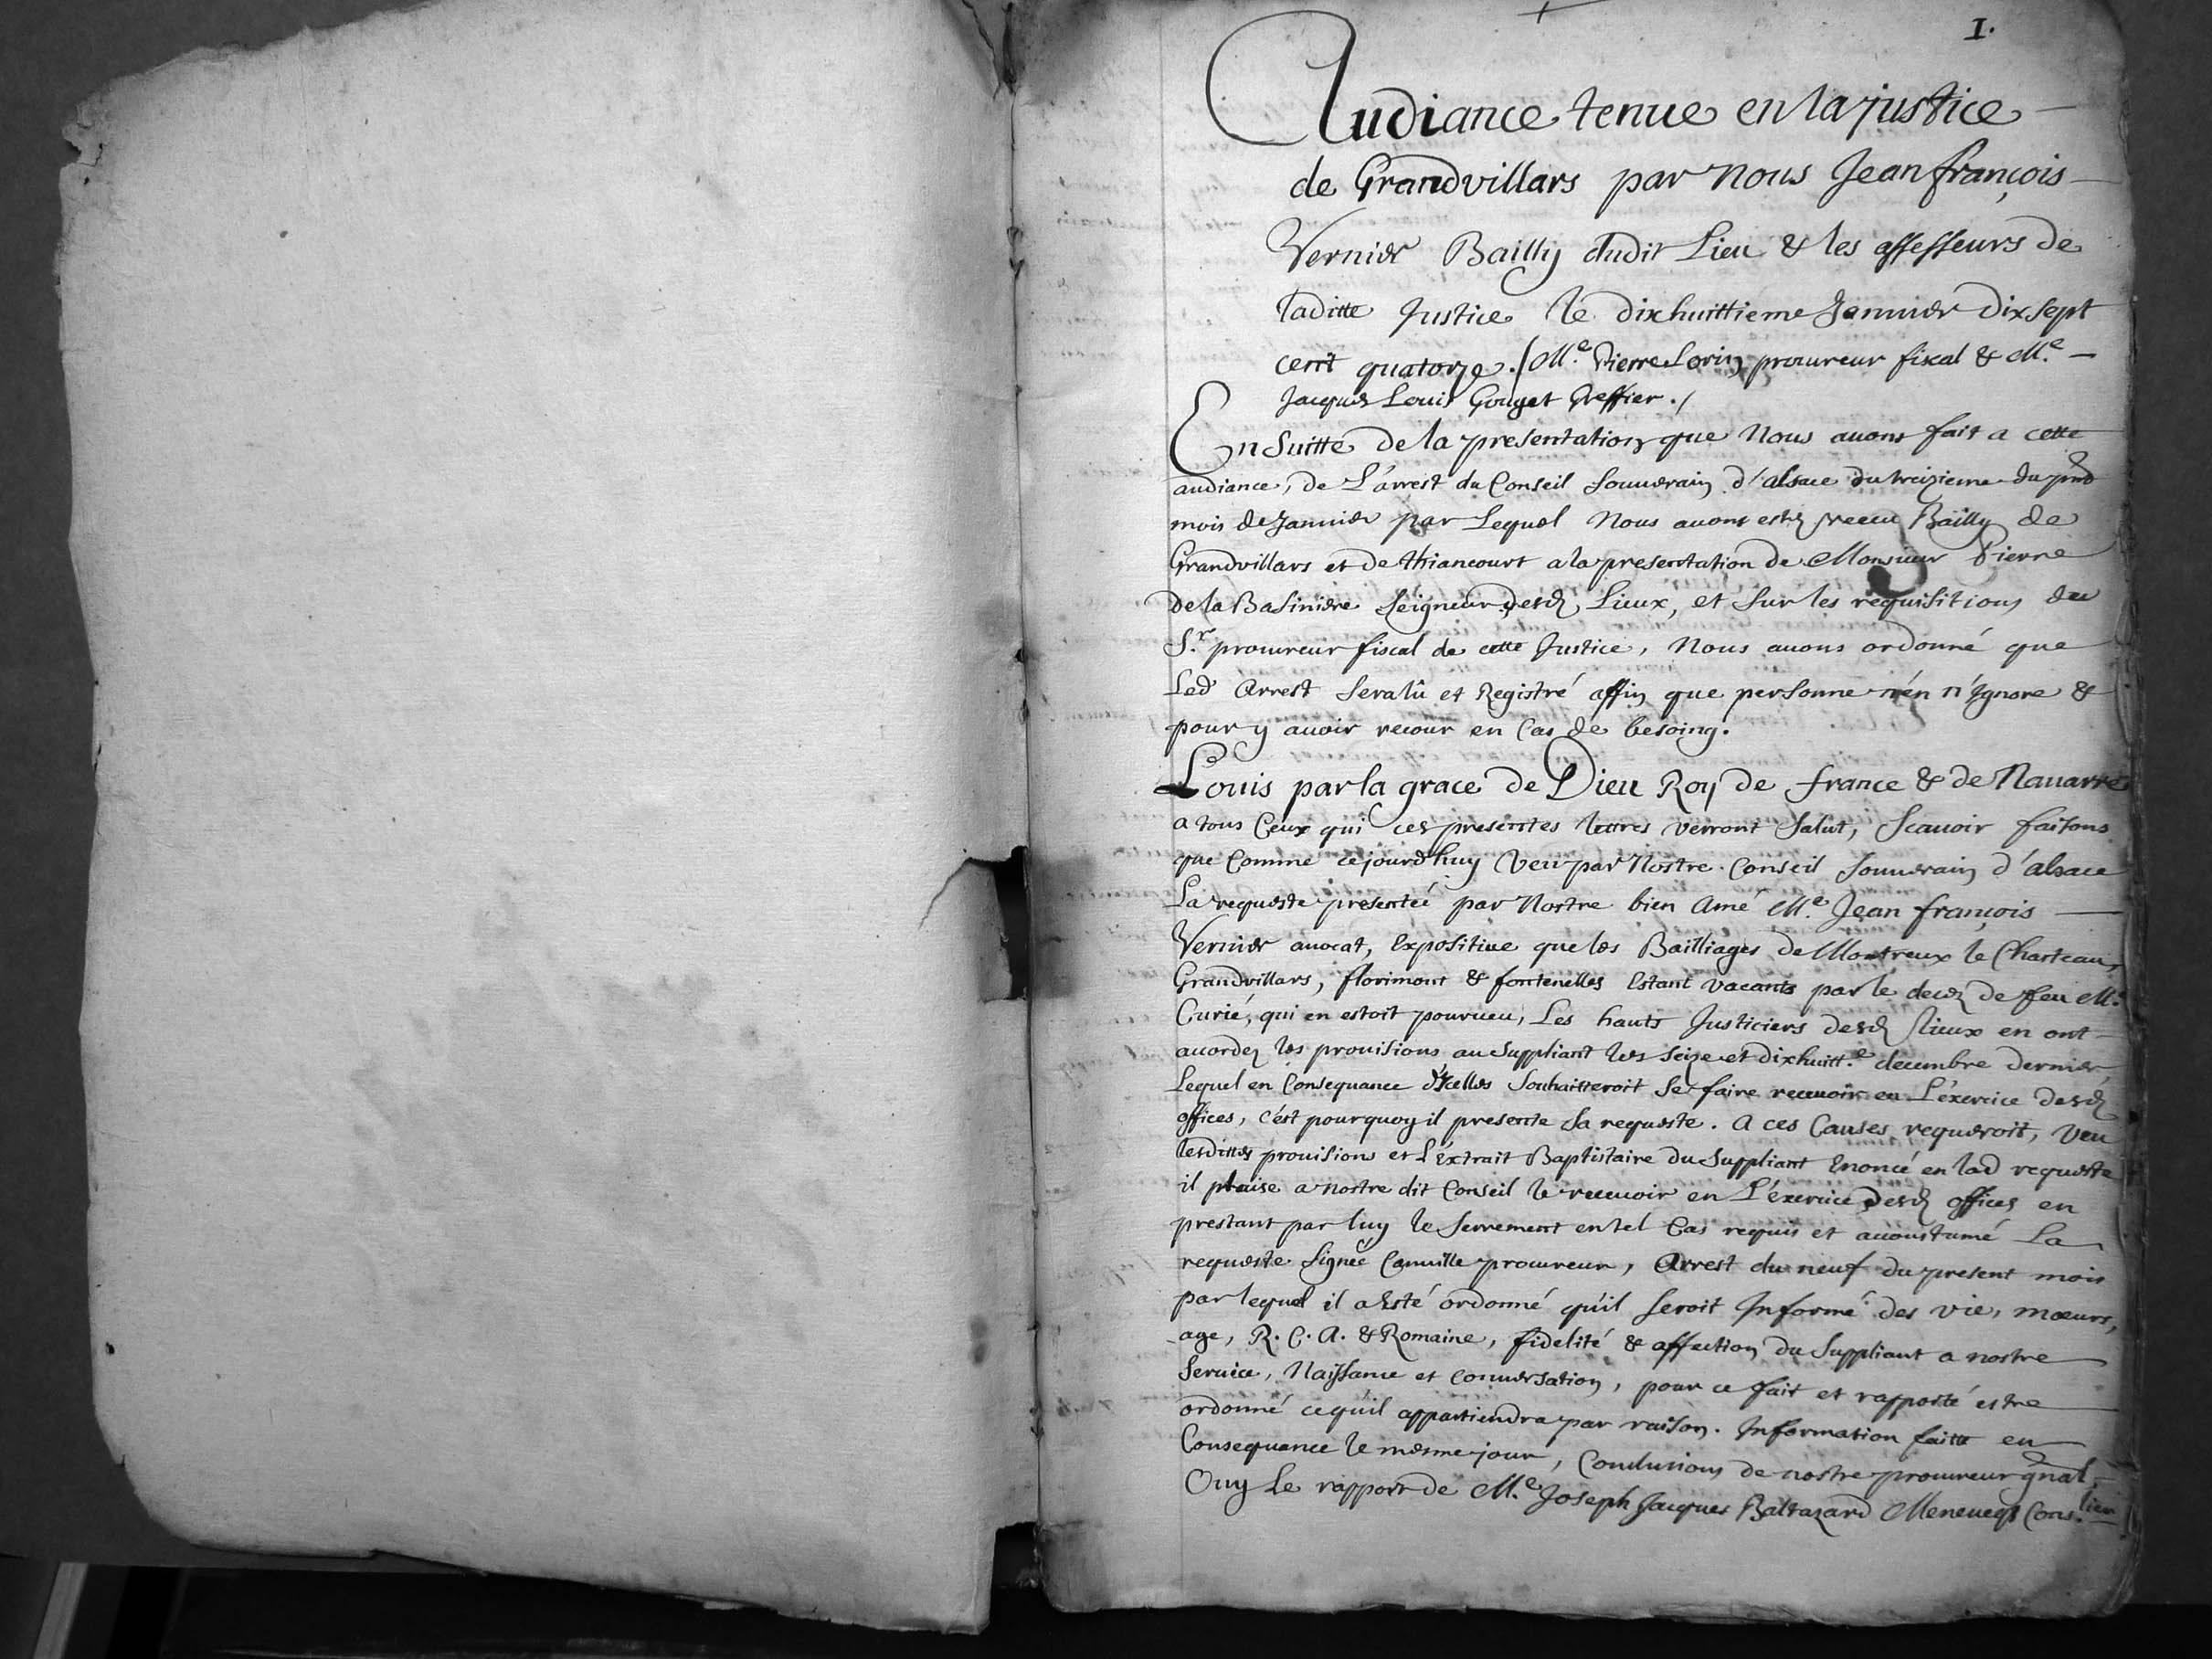 1.
Audiance tenue en la justice
de Grandvillars par Nous Jean françois
Vernier Bailly dudit Lieu & les assesseurs de
laditte Justice le dixhuittieme Januier dix sept
cent quatorze ./ M.e Pierre Lorin procureur fiscal & M.e
Jacques Louis Gouget Greffier ./
En Suitte de la presentation que Nous auons fait a cette
audiance, de L'arrest du Conseil Souuerain d'alsace du treizieme du pnt
mois de Januier par Lequel Nous auons estez receu Bailly de
Grandvillars et de thiancourt a la presentation de Monsieur Pierre
de la Basiniere Seigneur desd Lieux, et Sur les requisitions du
S.r procureur fiscal de cette Justice, Nous auons ordonné que
Led Arrest Sera lû et Registré affin que personne n'én n'Ignore &
pour y auoir recour en Cas de besoing.
Louis par la grace de Dieu Roy de france & de Nauarre
a tous Ceux qui ces presentes lettres verront Salut, Scauoir faisons
que Comme cejourdhuy Veu par Nostre Conseil Souuerain d'alsace
La requeste presenteé par Nostre bien Amé M.e Jean françois
Vernier auocat, Expositiue que les Bailliages de Montreux le Chasteau,
Grandvillars, florimont & fontenelles Estant vacants par le decez de feu M.e
Curié, qui en estoit pourueu, Les hauts Justiciers desd lieux en ont
acordez les prouisions au Suppliant les seize et dixhuitt.e decembre dernier,
Lequel en Consequance d'Icelles Souhaitteroit Se faire receuoir en L'éxercice desd
offices, c'ést pourquoy il presente Sa requeste. A ces Causes requeroit, Veu
lesdittes prouisions et L'éxtrait Baptistaire du Suppliant Enoncé en lad requeste
il plaise a nostre dit Conseil le receuoir en L'éxercice desd offices en
prestant par luy le Serrement en tel Cas requis et accoustumé La
requeste Signeé Canuille procureur, Arrest du neuf du present mois
par lequel il a Esté ordonné qu'il Seroit Informé des vie, mœurs,
age, R. C. A. & Romaine, fidelité & affection du Suppliant a nostre
Seruice, Naissance et Conuersation, pour ce fait et rapporté estre
ordonné cequ'il appartiendra par raison. Information faitte en
Consequance le mesme jour, Conclusions de nostre procureur gnal,
Ouy Le rapport de M.e Joseph Jacques Baltazard Meneuegt Cons.lier